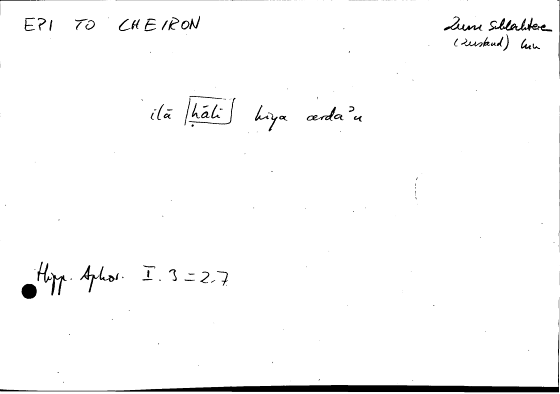 EPI TO CHEIRON
Zum Schlechteren
(Zustand) hin
ilā ḥāli hiya arda'u
Hipp. Aphor. I.3 = 2,7